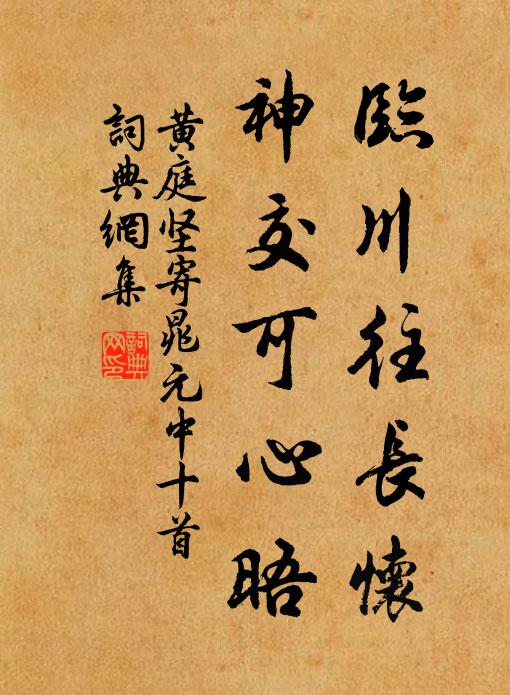 臨川往長懷
神交可心晤
黃庭坚寄晁元中十首
詞典網集
詞典
网印